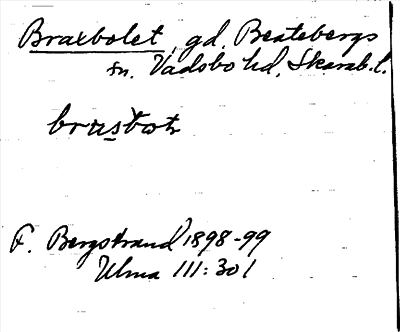 Braxbolet, gd. Beatebergs
sn. Vadsbo hd, Skarab.l.
F. Bergstrand 1898-99
Ulma 111:301